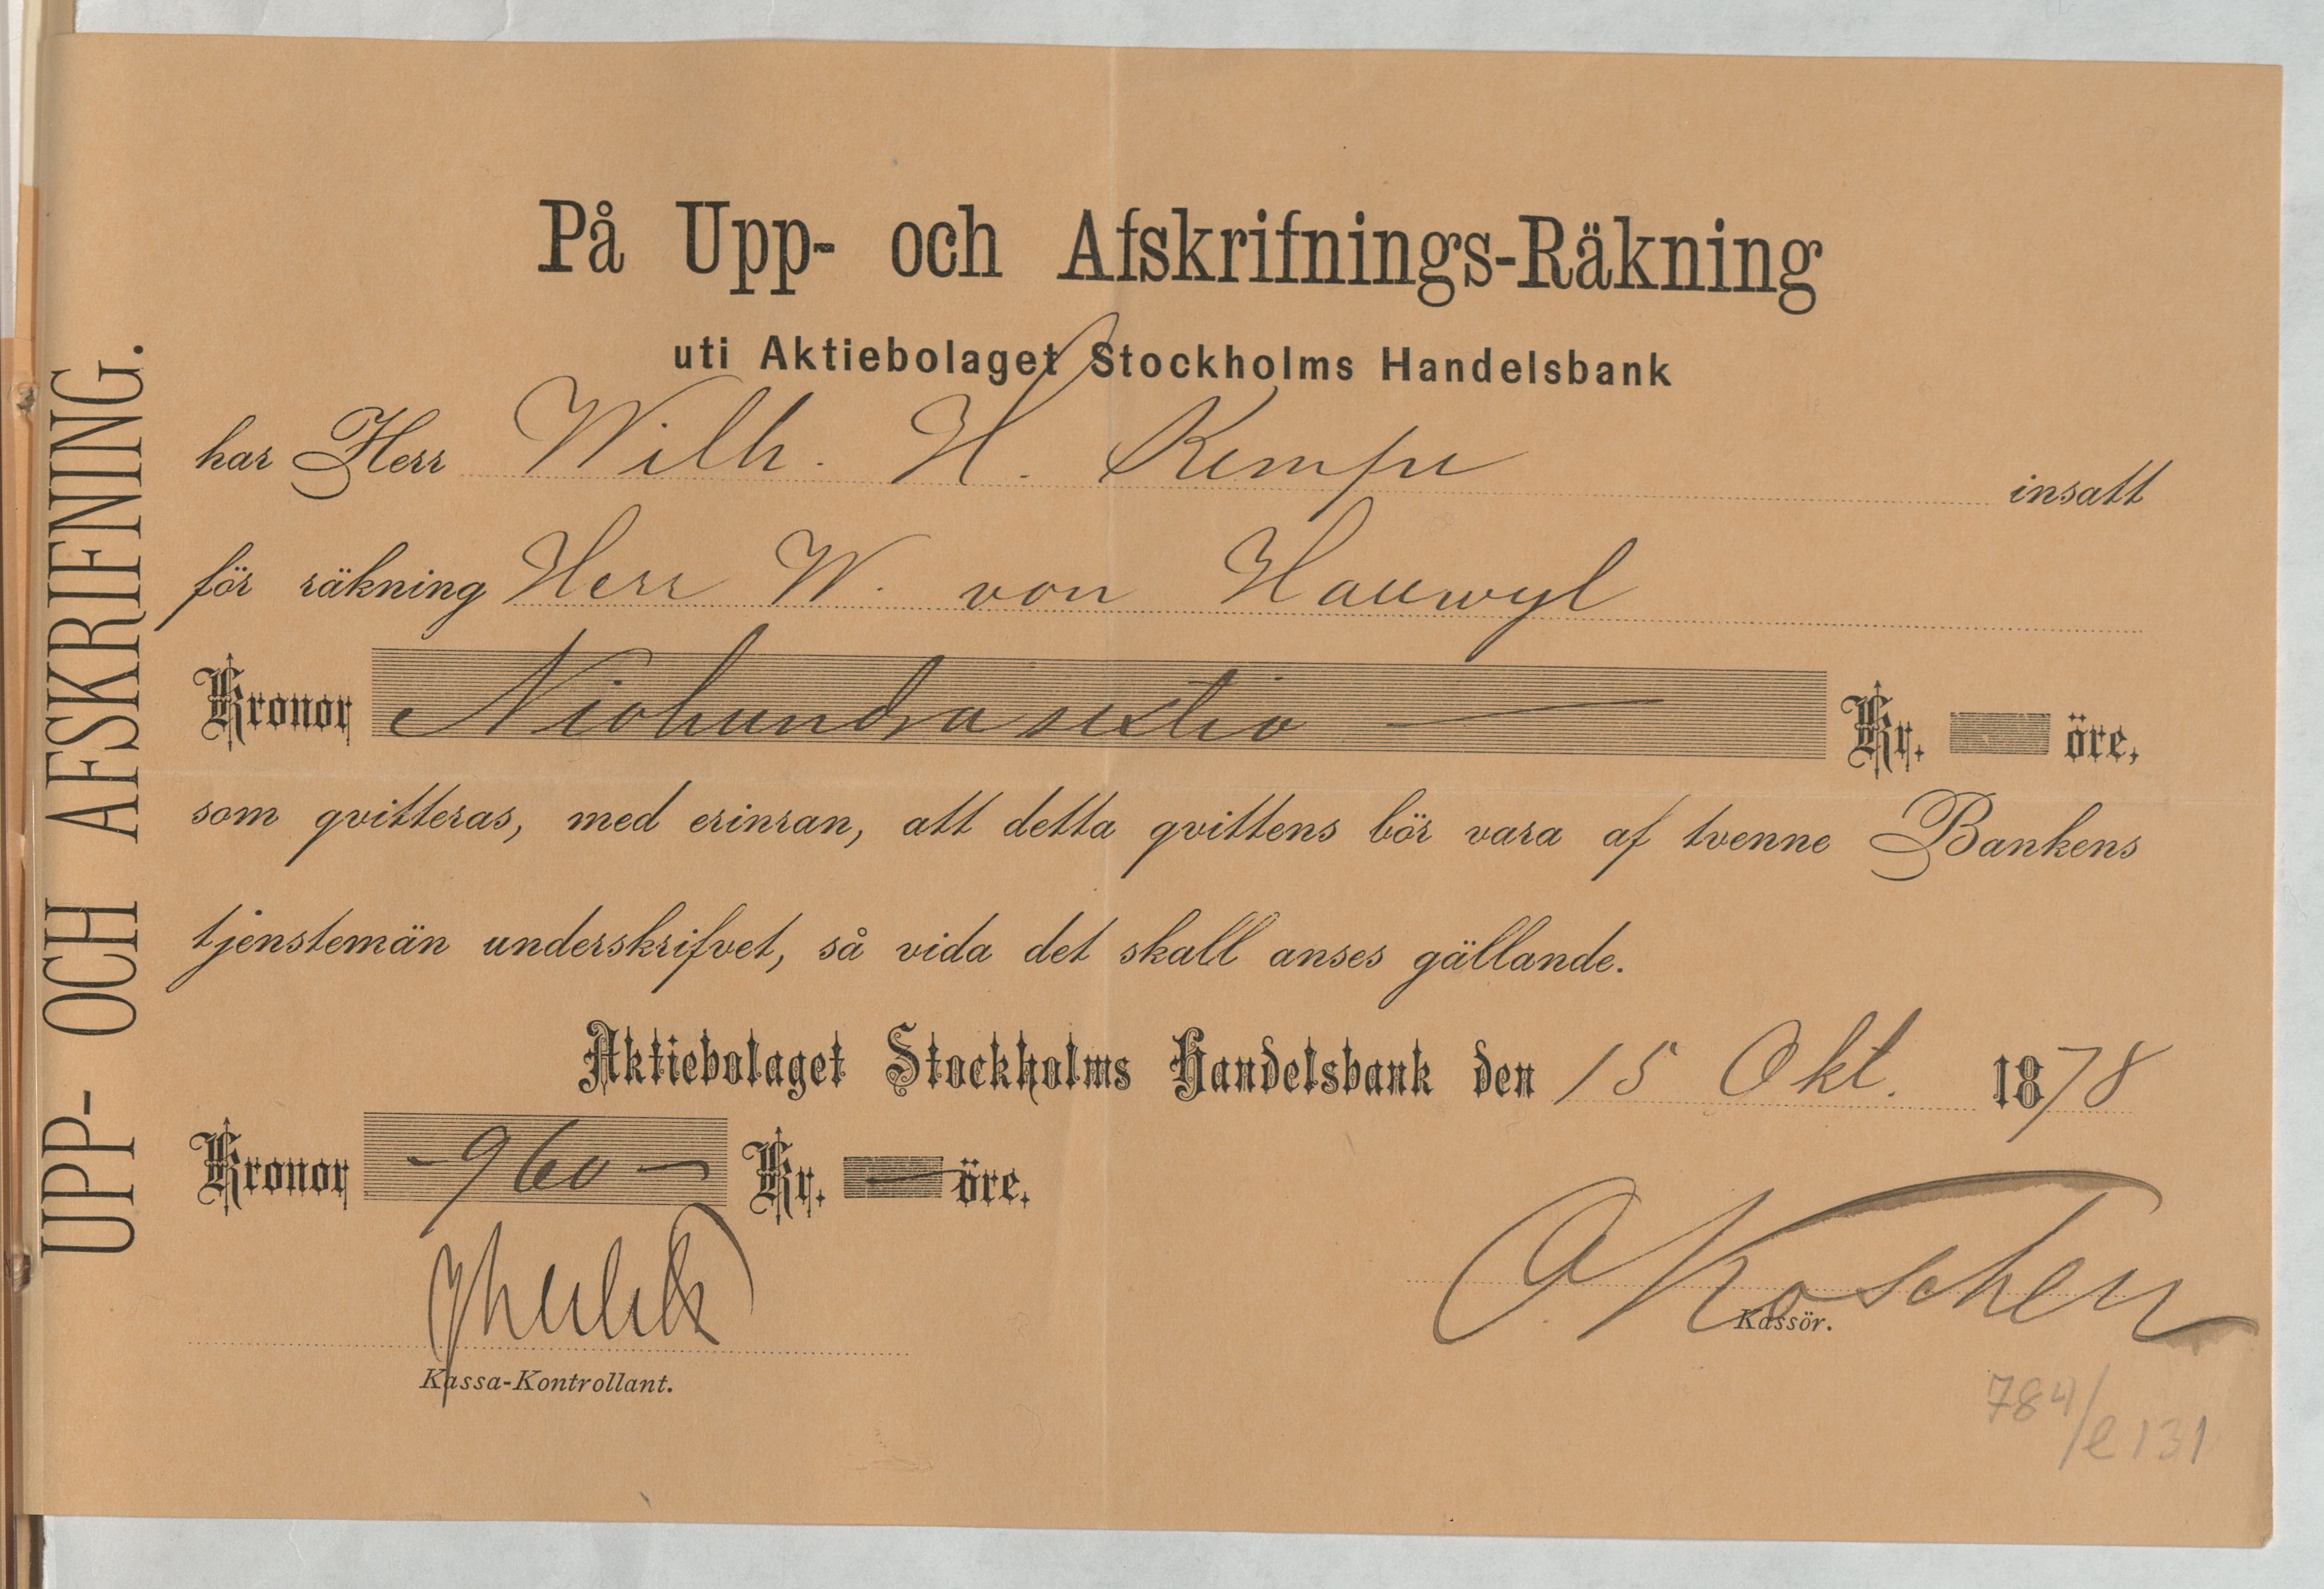 UPP- OCH AFSKRIFNING.
På Upp- och Afskrifnings-Räkning
uti Aktiebolaget Stockholms Handelsbank
har Herr Wilh. H. Kempe insatt
för räkning Herr W. von Hallwyl
Kronor Niohundrasextio — Kr. öre,
som qvitteras, med erinran, att detta qvittens bör vara af tvenne Bankens
tjenstemän underskrifvet, så vida det skall anses gällande.
Aktiebolaget Stockholms Handelsbank den 15 Okt. 1878
Kronor -960- Kr. — öre.
Kassör.
Kassa-Kontrollant.
784/e131